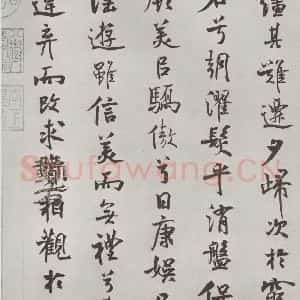 繣其難遷夕歸次於窮
石兮朝濯髮乎洧盤保
厥美以驕傲兮日康娛以
淫遊雖信美而無禮兮
違棄而改求覽相觀於
Shufawang.CN